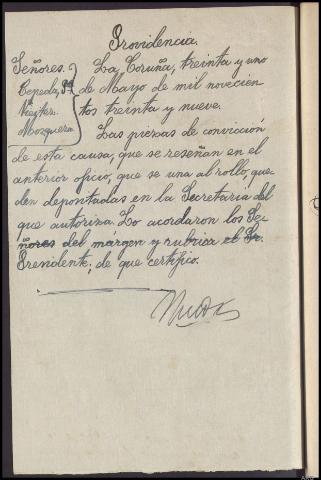 Providencia.
Señores. La Coruña, treinta y uno
Cepeda, de Mayo de mil novecien
Viejter. tos treinta y nueve.
Mosquera
Las piezas de convicción
de esta causa, que se reseñan en el
anterior oficio, que se una al rollo, que
den depositadas en la Secretaría del
que autoriza. Lo acordaron los Se
ñores del márgen y rubrica el Sr.
Presidente; de que certifico.